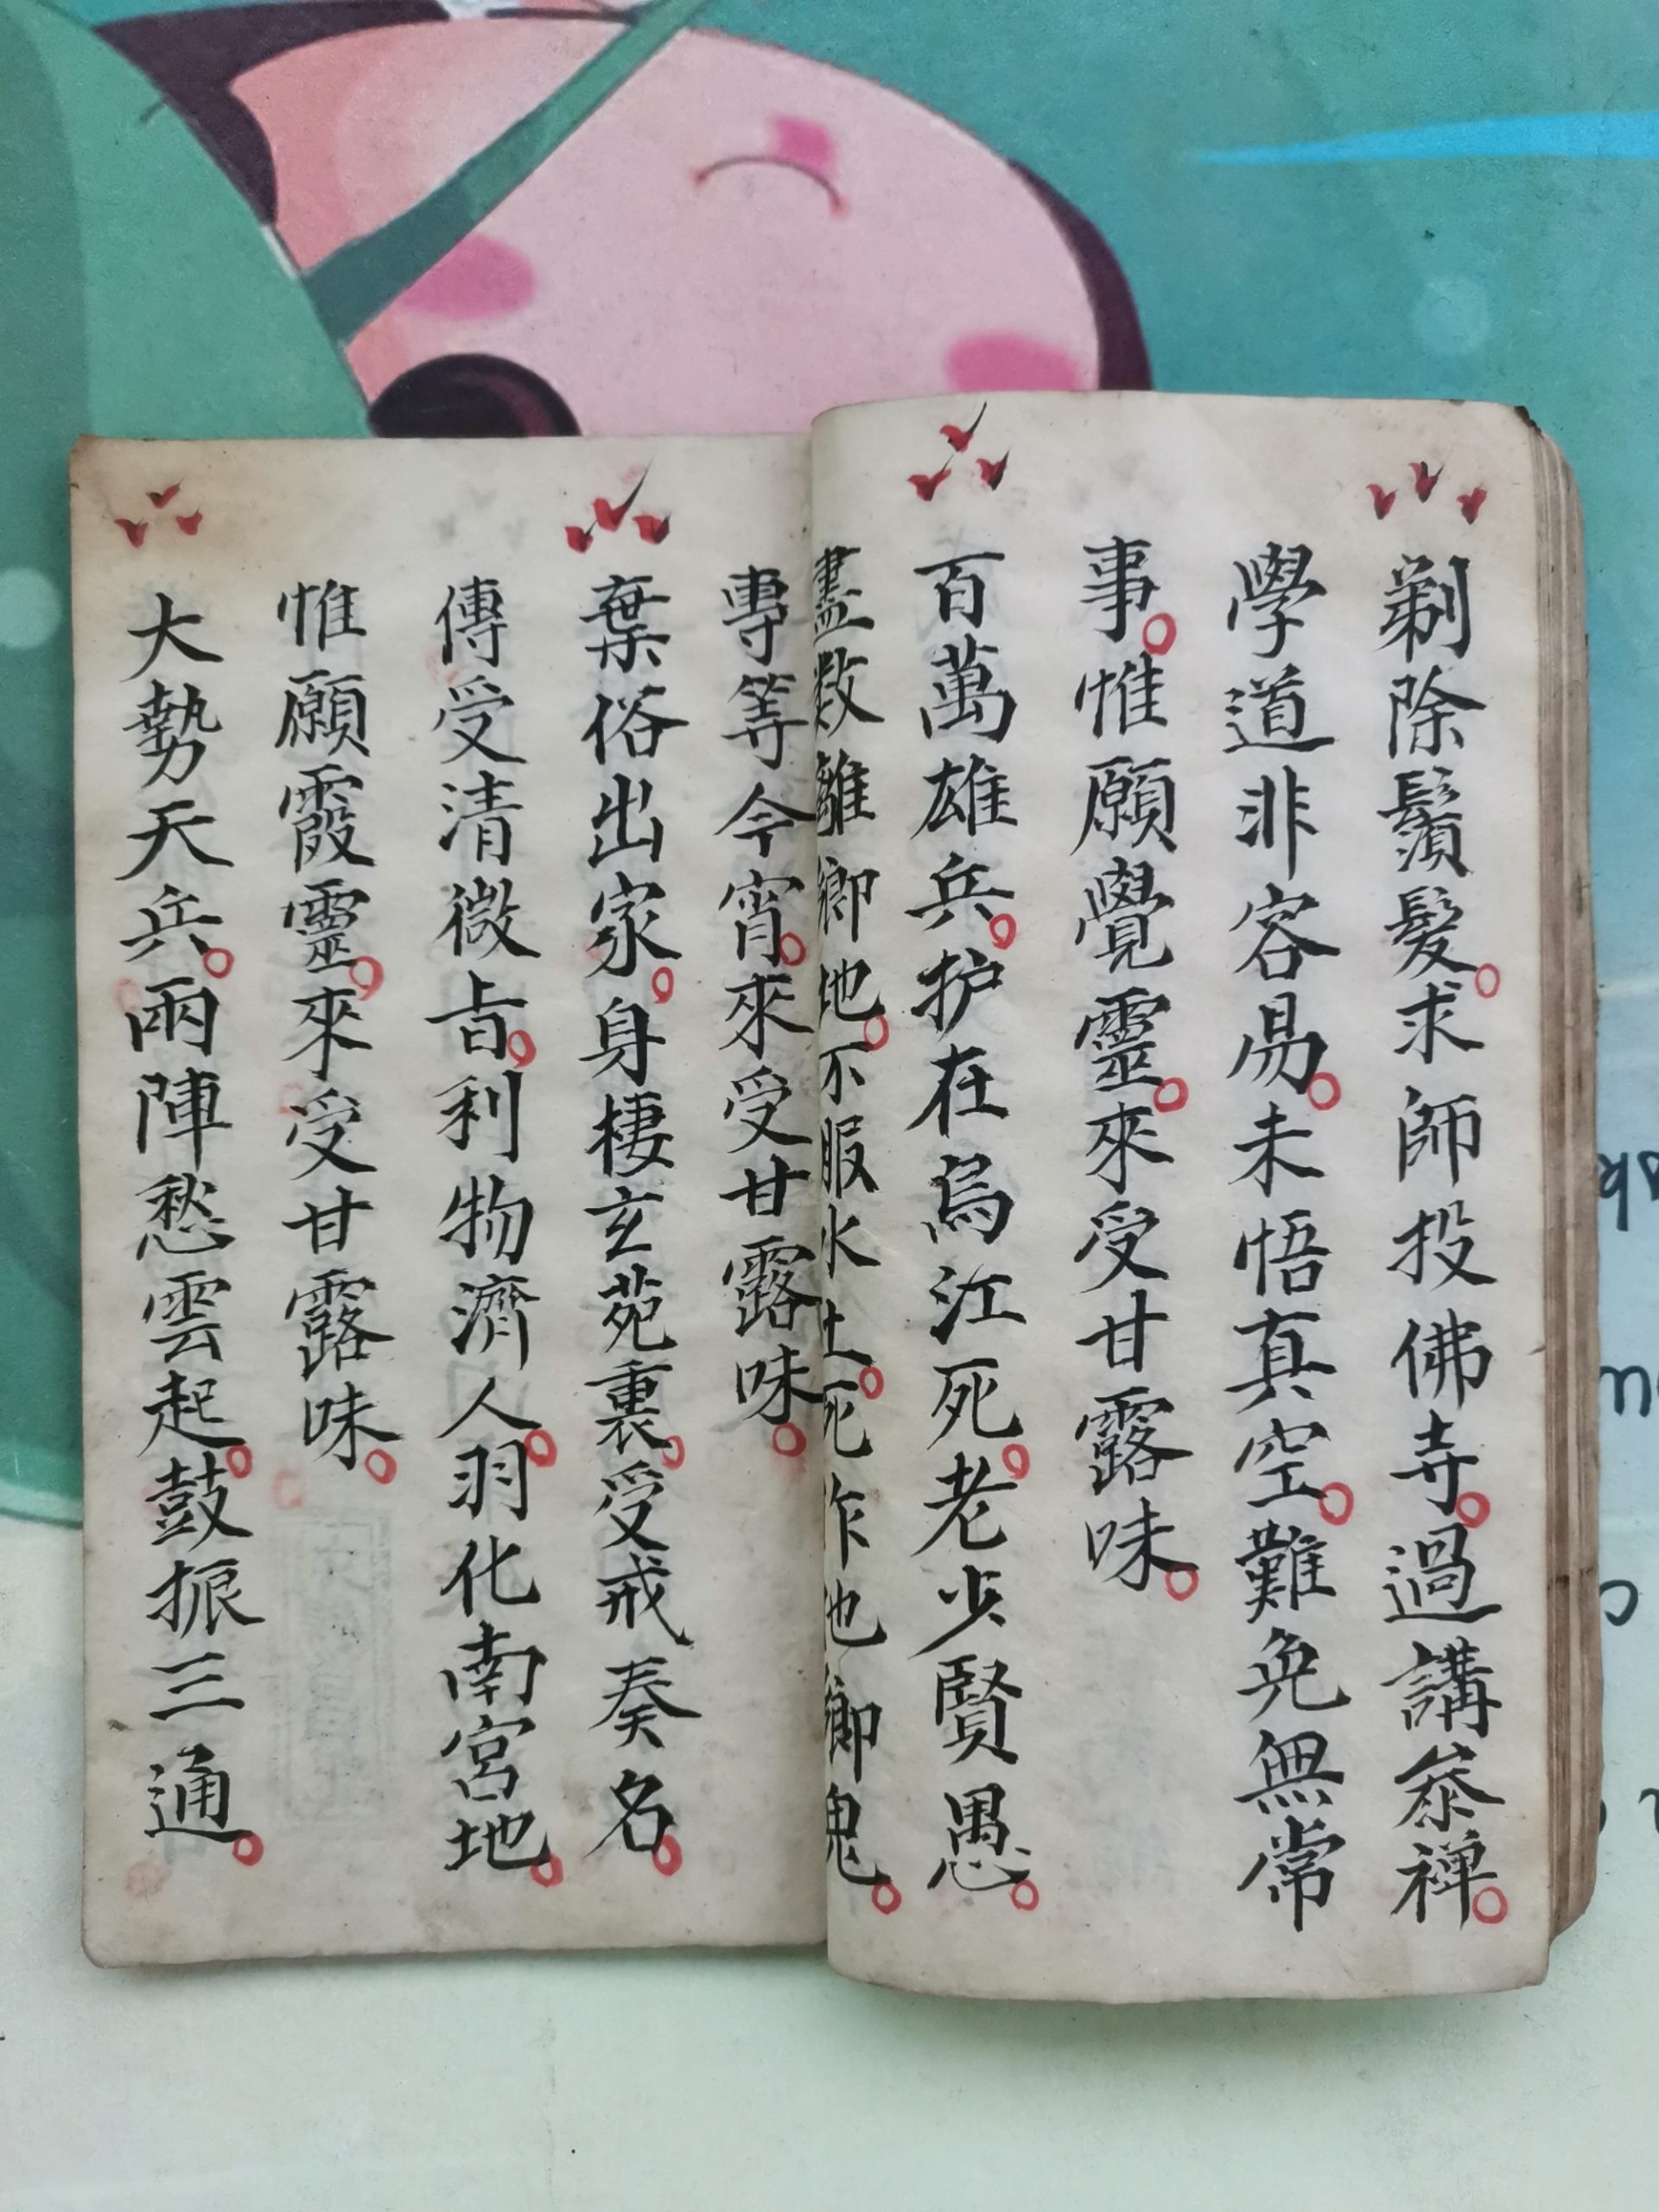 剃除鬚髮。求師投佛寺。過講叅禪。
學道非容易。未悟真空。難免無常
事。惟願覺靈。來受甘露味。
百萬雄兵。护在烏江死。老少賢愚。
盡数離鄉地。不服水土。死作他鄉鬼。
專等今宵。來受甘露味。
棄俗出家。身棲玄苑裏。受戒奏名。
傳受清微㫖。利物濟人。羽化南宮地。
惟願霞靈。來受甘露味。
大勢天兵。兩陣愁雲起。鼓振三通。